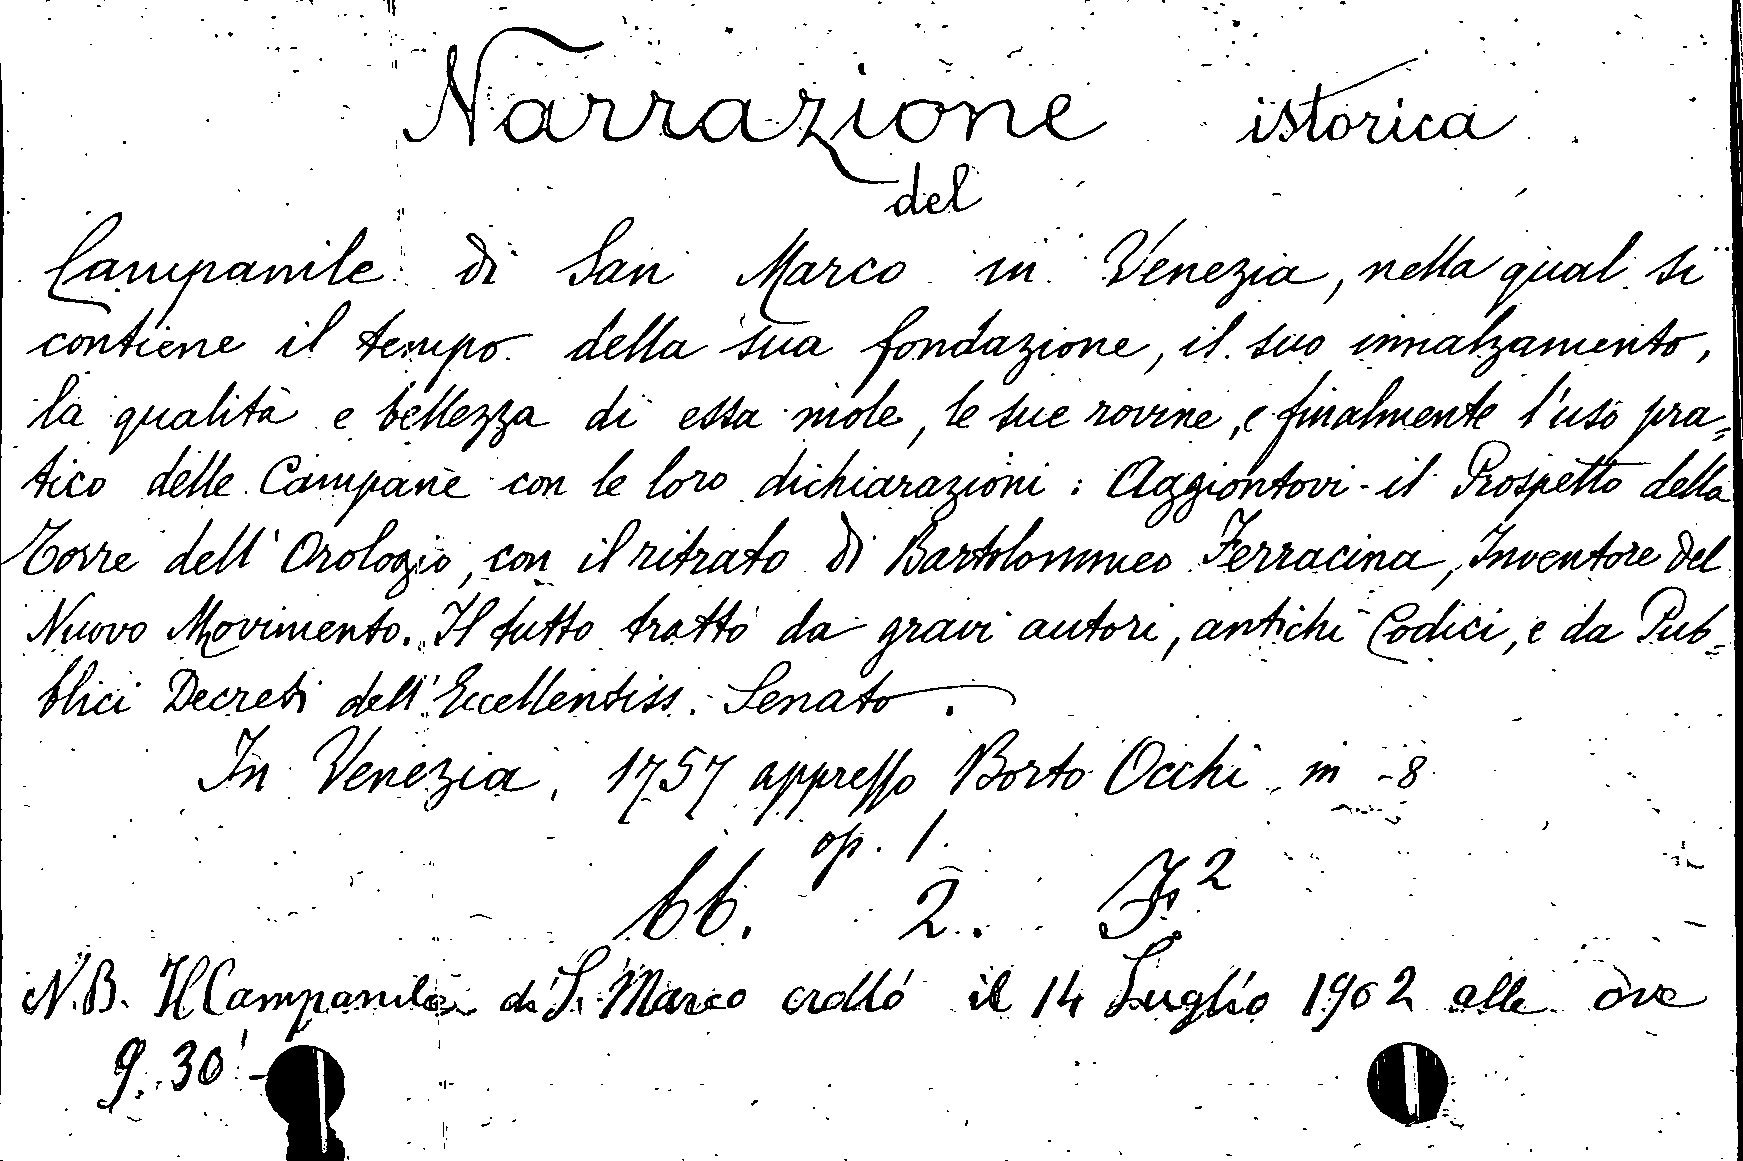 Narrazione istorica
del
Campanile di San Marco in Venezia, nella qual si
contiene il tempo della sua fondazione, il suo innalzamento,
la qualità e bellezza di essa mole, le sue rovine, e finalmente l'uso pra=
tico delle Campane con le loro dichiarazioni: Aggiontovi il Prospetto della
Torre dell' Orologio, con il ritrato di Bartolommeo Ferracina, Inventore del
Nuovo Movimento. Il tutto tratto da gravi autori, antichi Codici, e da Pub=
blici Decreti dell' Eccellentiss. Senato.
In Venezia, 1757 appresso Borto Occhi in -8
op. 1.
bb. 2. F²
N.B. Il Campanile di S. Marco crollò il 14 Luglio 1902 alle ore
9.30' -